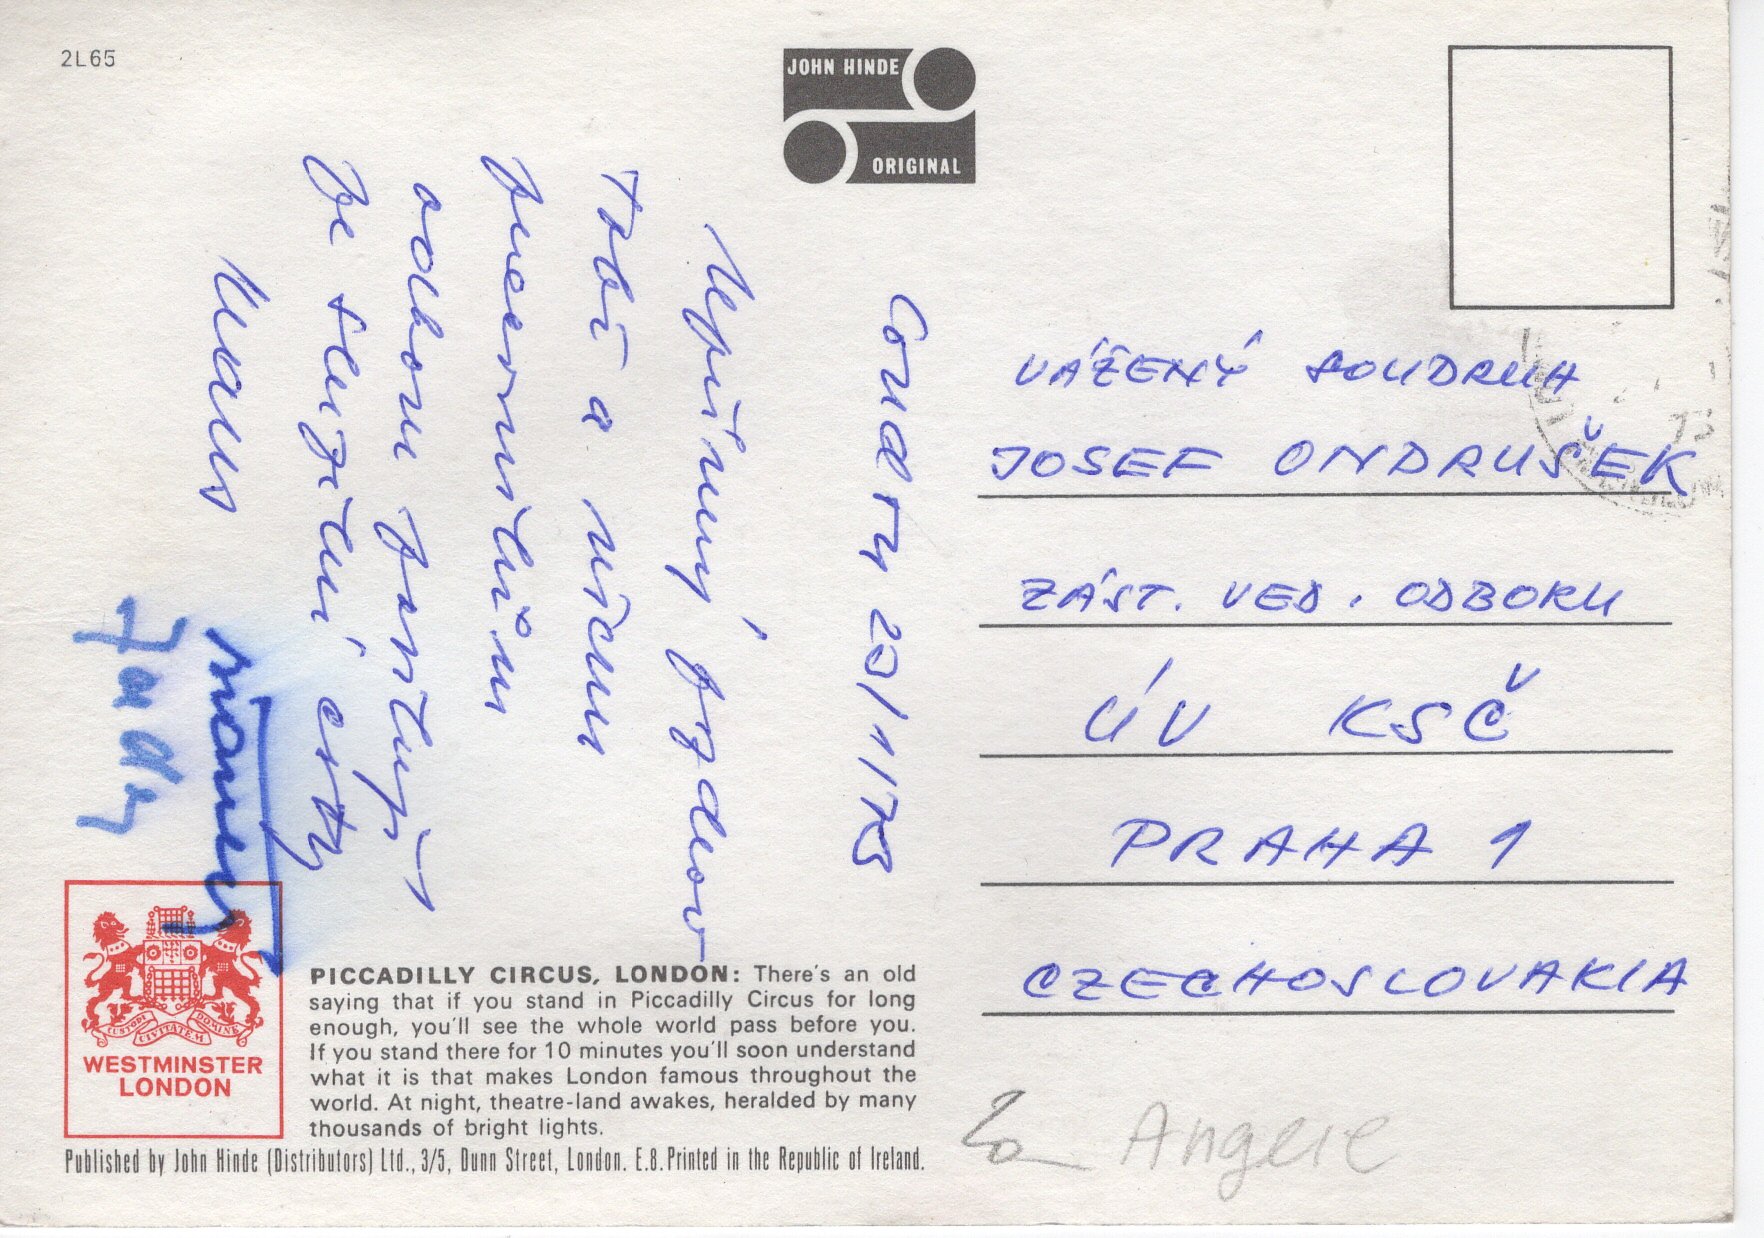 2L65
JOHN HINDE
ORIGINAL
London 20/1/75
Upřímný pozdrav
Tobě a všem
pracovníkům
odboru posílají
ze služební cesty
VÁŽENÝ SOUDRUH
JOSEF ONDRUŠEK
ZÁST. VED. ODBORU
ÚV KSČ
PRAHA 1
CZECHOSLOVAKIA
CUSTODI CIVITATEM DOMINE
WESTMINSTER
LONDON
PICCADILLY CIRCUS, LONDON: There's an old
saying that if you stand in Piccadilly Circus for long
enough, you'll see the whole world pass before you.
If you stand there for 10 minutes you'll soon understand
what it is that makes London famous throughout the
world. At night, theatre-land awakes, heralded by many
thousands of bright lights.
Published by John Hinde (Distributors) Ltd., 3/5, Dunn Street, London. E.8. Printed in the Republic of Ireland.
Angelie